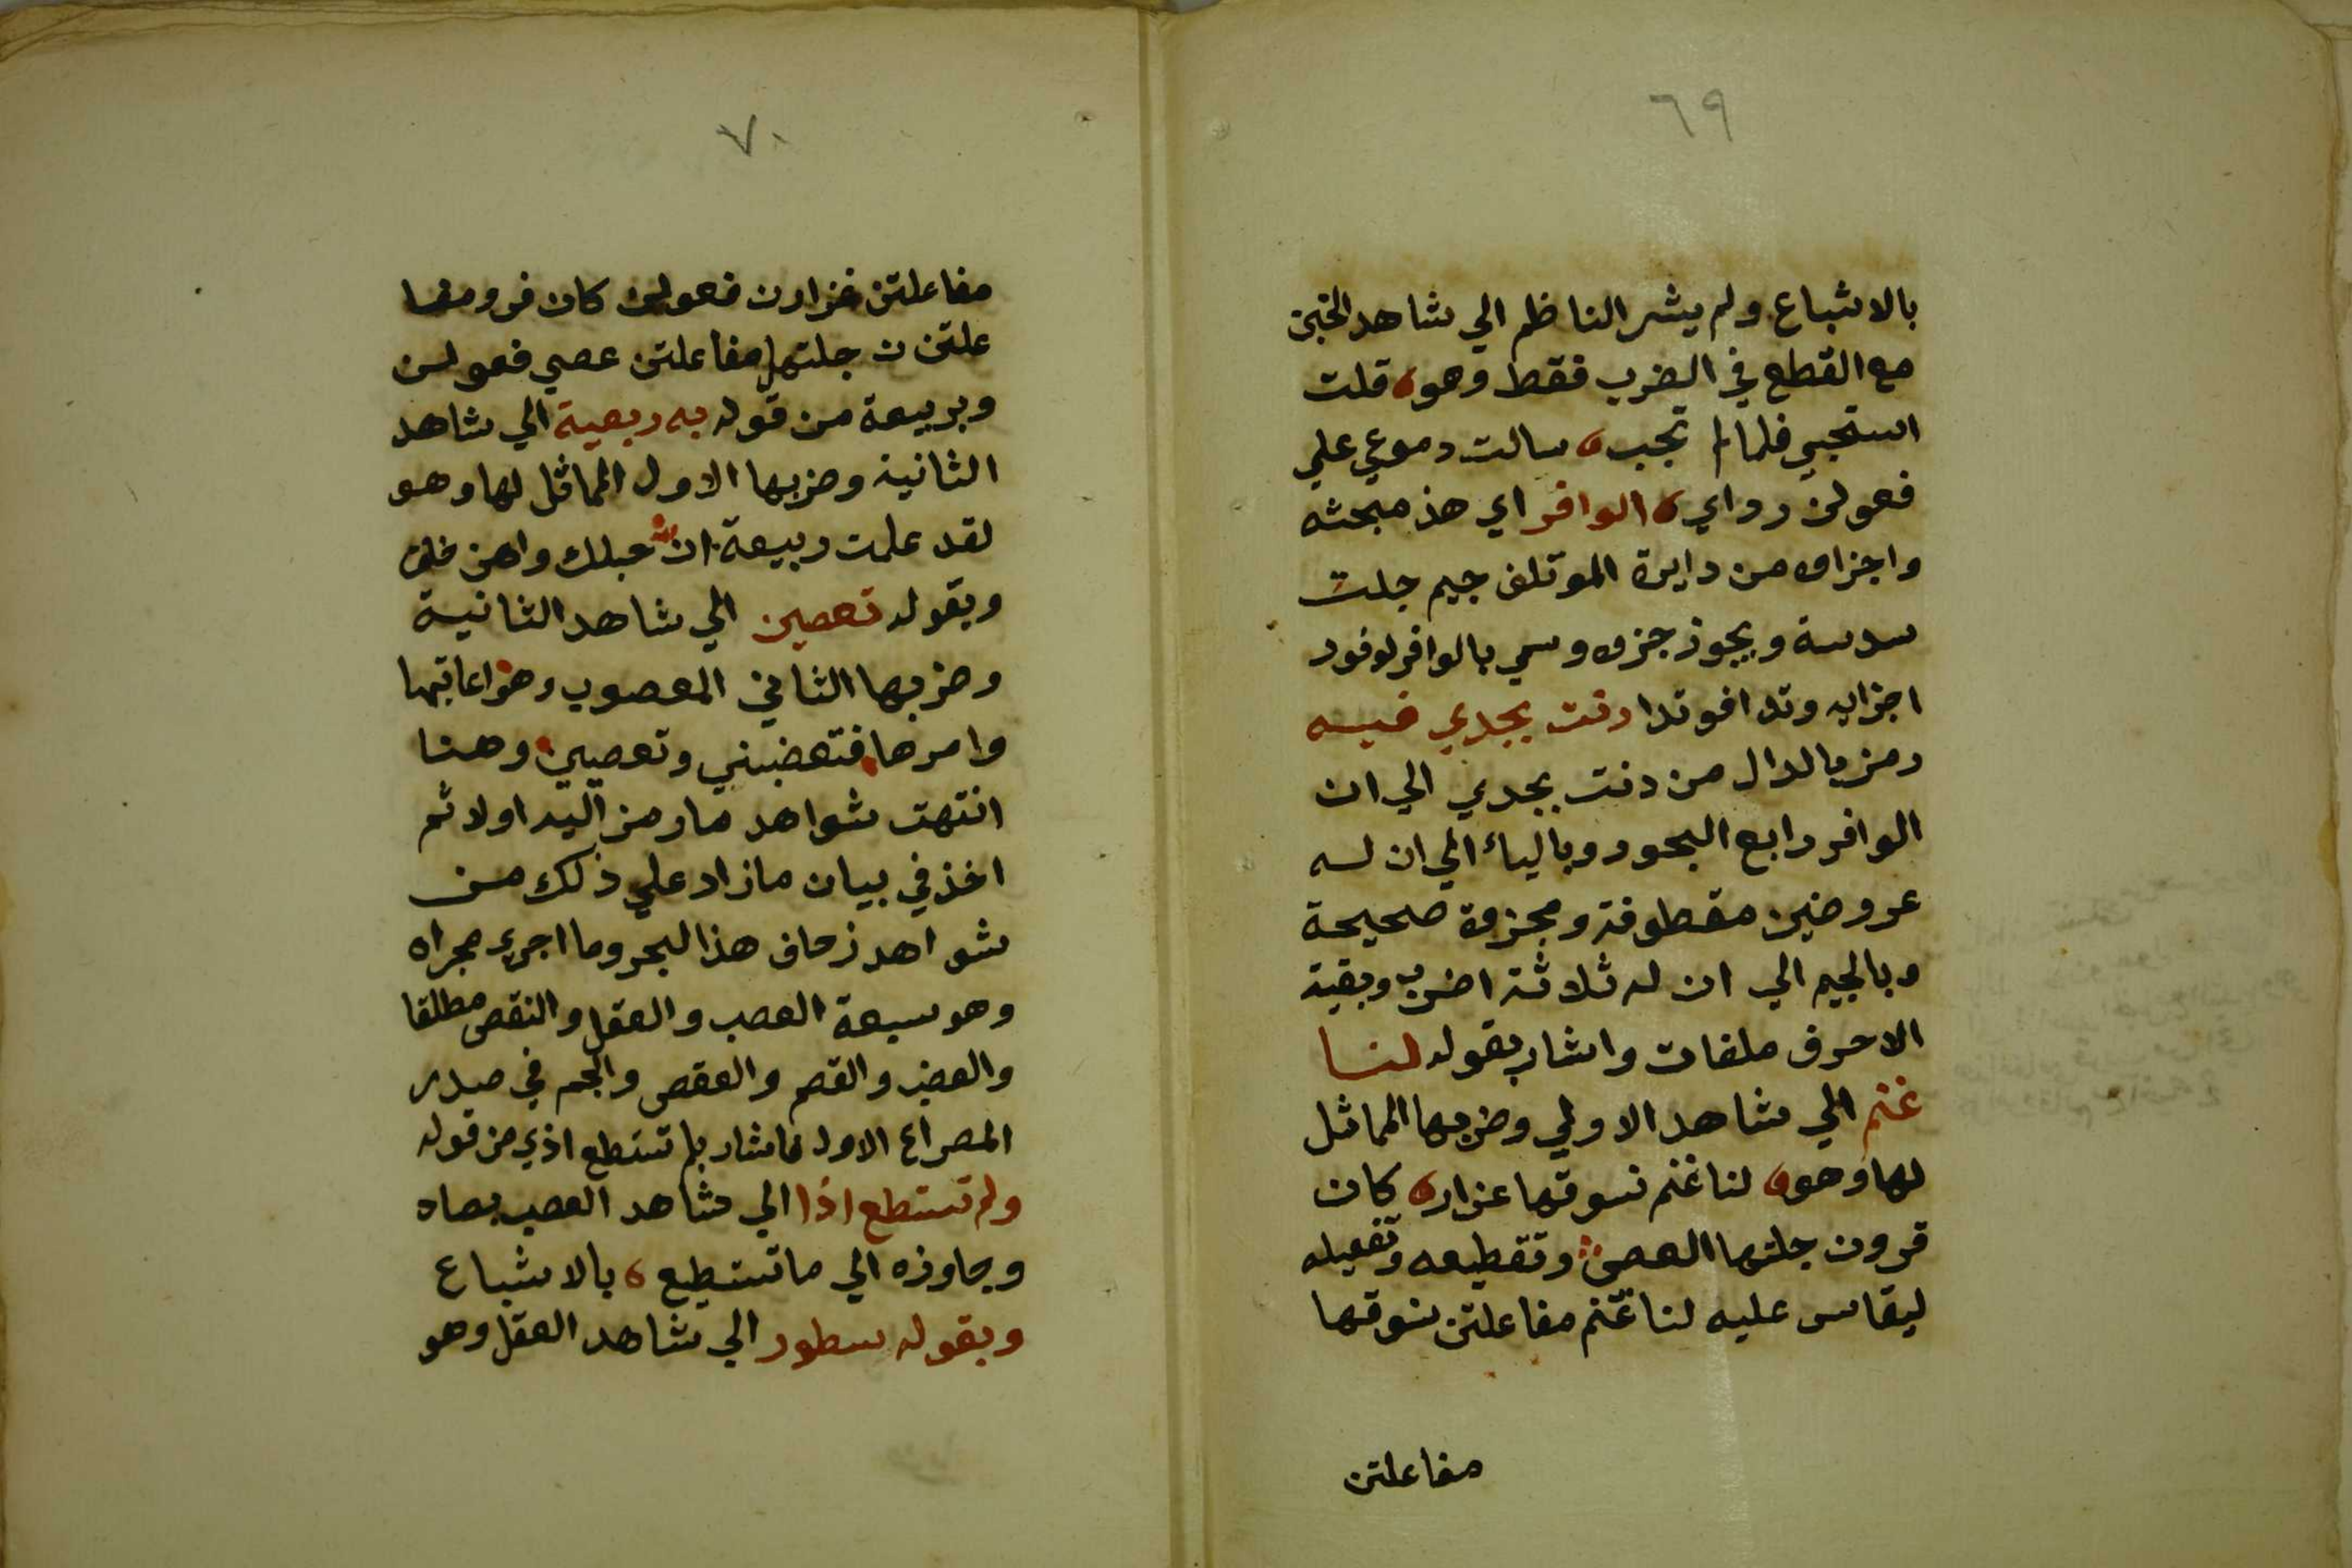 ٦٩
بالاشباع ولم يشر الناظم الي شاهد الخبن
مع القطع في الضرب فقط وهو قلت
استجيبي فلما لم تجب سالت دموعي علي
فعولن رداي الوافر اي هذ مبحثه
واجزاه من دايرة الموتلف جيم جلت
سدسة ويجوز جزه وسمي بالوافر لوفور
اجزايه وتدا فوتدا دنت بجدي فيه
رمز بالدال من دنت بجدي الي ان
الوافر رابع البحور وبالياء الي ان له
عروضين مقطوفة ومجزوة صحيحة
وبالجيم الي ان له ثلاثة اضرب وبقية
الاحرف ملغات واشار بقوله لنا
غنم الي شاهد الاولي وضربها المماثل
لها وهو لنا غنم نسوقها غزار كان
قرون جلتها العصي وتقطيعه وتفعيله
ليقاس عليه لنا غنم مفاعلتن نسوقها
مفاعلتن
٧٠
مفاعلتن غزارن فعولن كان قرو مفا
علتن ن جلتها مفاعلتن عصي فعولن
وبربيعة من قوله به ربعية الي شاهد
الثانية وضربها الاول المماثل لها وهو
لقد علمت ربيعة ان حبلك واهن خلق
وبقوله تعصين الي شاهد الثانية
وضربها الثاني المعصوب وهو اعاتبها
وامرها فتغضبني وتعصيني وهنا
انتهت شواهد ما رمز اليه اولا ثم
اخذ في بيان ما زاد علي ذلك من
شواهد زحاف هذا البحر وما اجري مجراه
وهو سبعة العصب والعقل والنقص مطلقا
والعضب والقصم والعقص والجمم في صدر
المصراع الاول فاشار بلم تستطع اذي من قوله
ولم تستطع اذا الي شاهد العصب بصاه
وجاوزه الي ما تستطيع بالاشباع
وبقوله سطور الي شاهد العقل وهو